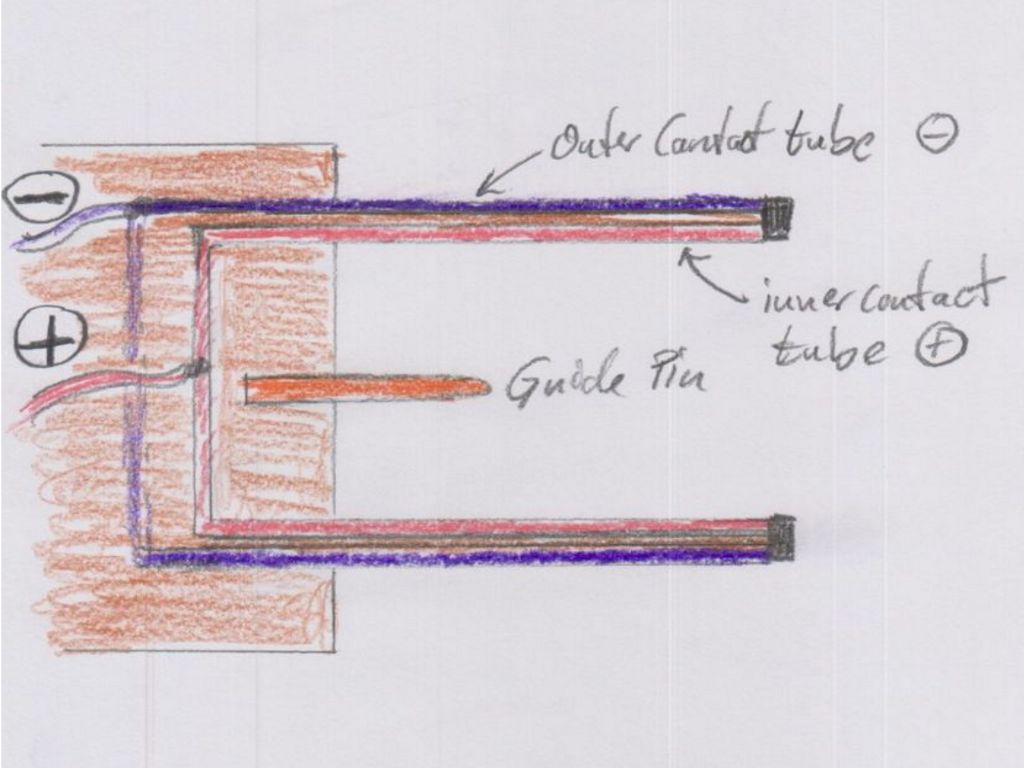 Outer Contact tube ⊖
⊖
inner contact
tube ⊕
⊕
Guide Pin